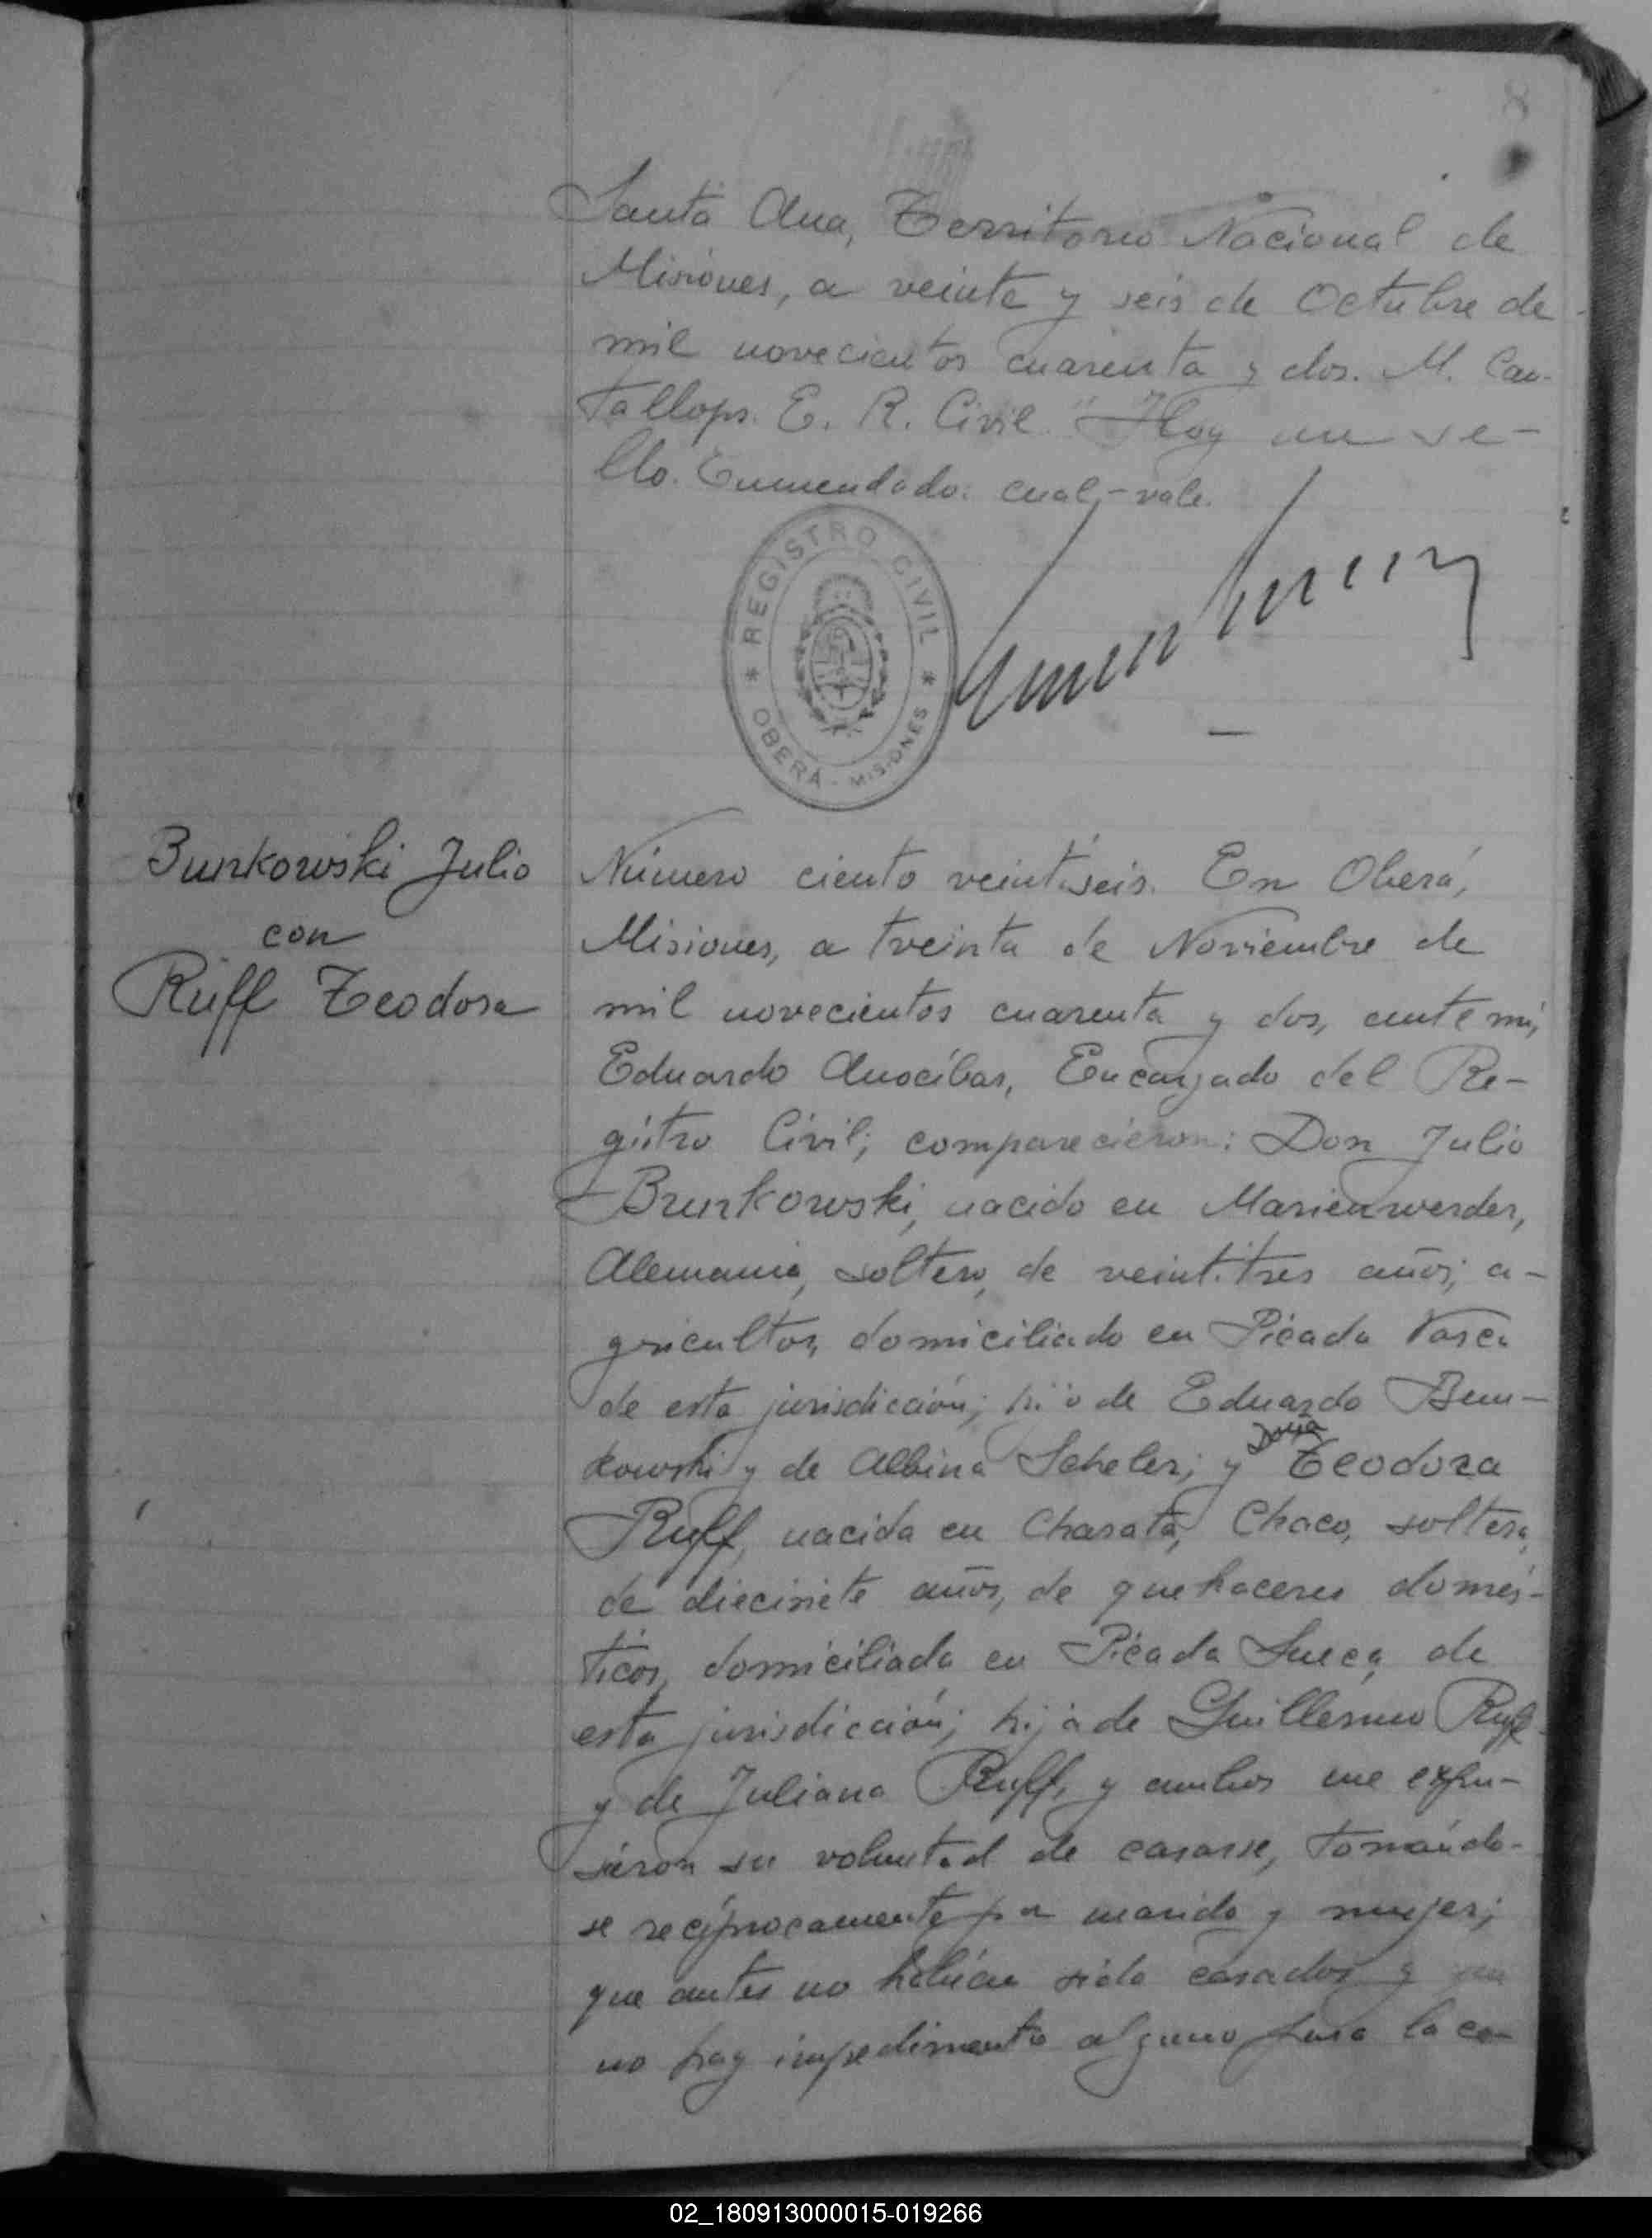 8
Santa Ana, Territorio Nacional de
Misiones, a veinte y seis de Octubre de
mil novecientos cuarenta y dos. M. Can-
tallops. E. R. Civil." Hay un se-
llo. Enmendado: cual,-vale.
* REGISTRO CIVIL *
OBERÁ - MISIONES
Bunkowski Julio
con
Ruff Teodora
Número ciento veintiseis. En Oberá,
Misiones, a treinta de Noviembre de
mil novecientos cuarenta y dos, ante mí,
Eduardo Anocíbar, Encargado del Re-
gistro Civil; comparecieron: Don Julio
Bunkowski, nacido en Marienwerder,
Alemania, soltero, de veintitres años, a-
gricultor, domiciliado en Picada Vasca
de esta jurisdicción; hijo de Eduardo Bun-
kowski y de Albina Scheler; y Doña Teodora
Ruff, nacida en Charata, Chaco, soltera,
de diecisiete años, de quehaceres domés-
ticos, domiciliada en Picada Sueca, de
esta jurisdicción; hija de Guillermo Ruff
y de Juliana Ruff, y ambos me expu-
sieron su voluntad de casarse, tomándo-
se recíprocamente por marido y mujer;
que antes no habían sido casados y
no hay impedimento alguno para la ce-
02_180913000015-019266